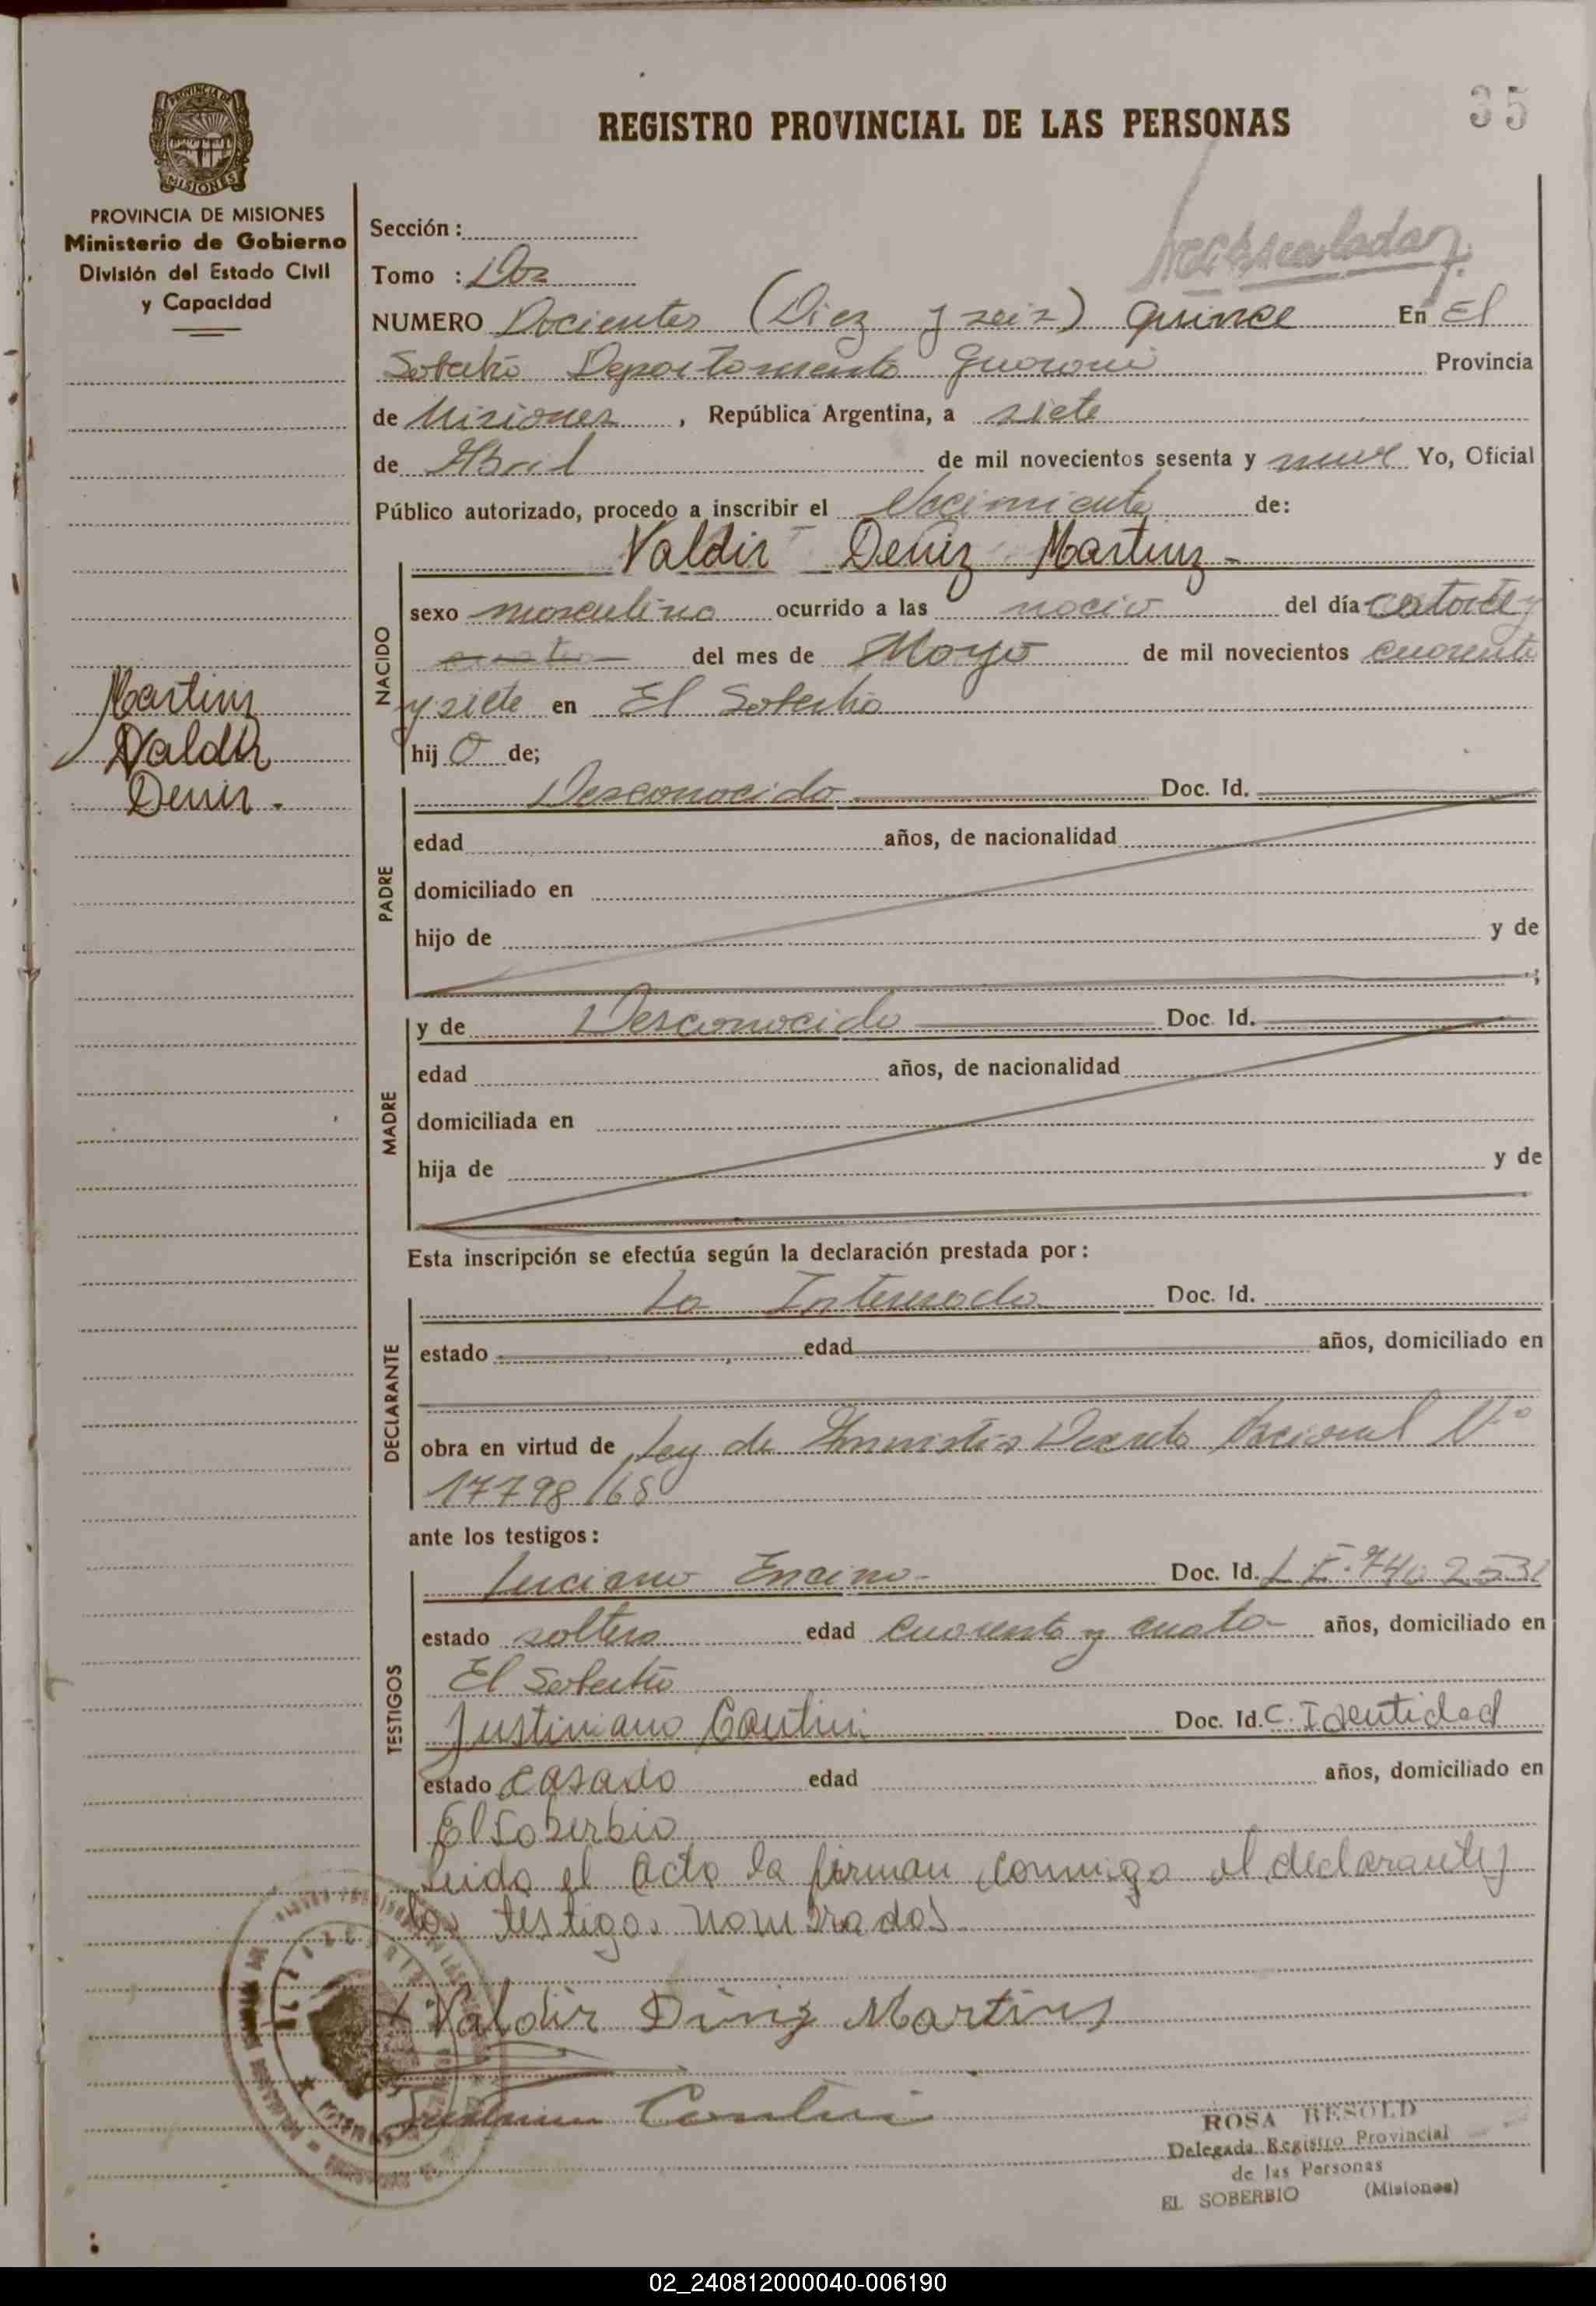 35
REGISTRO PROVINCIAL DE LAS PERSONAS
PROVINCIA DE MISIONES
PROVINCIA DE MISIONES
Ministerio de Gobierno
División del Estado Civil
y Capacidad
Sección :
Tomo : Dos
NUMERO Docientos (Diez y seis) quince En El
Soberbio Departamento Guarani Provincia
de Misiones , República Argentina, a siete
de Abril de mil novecientos sesenta y nueve Yo, Oficial
Público autorizado, procedo a inscribir el Nacimiento de:
Valdir Deniz Martins
NACIDO
sexo masculino ocurrido a las nació del día catorce
del mes de Mayo de mil novecientos cuarenta
y siete en El Soberbio
hij o de;
Martins
Valdir
Deniz.
PADRE
Desconocido Doc. Id.
edad años, de nacionalidad
domiciliado en
hijo de y de
;
MADRE
y de Desconocido Doc. Id.
edad años, de nacionalidad
domiciliada en
hija de y de
Esta inscripción se efectúa según la declaración prestada por :
DECLARANTE
La Interesada Doc. Id.
estado edad años, domiciliado en
obra en virtud de Ley de Amnistia Decreto Nacional Nº
17798/68
ante los testigos :
TESTIGOS
Luciano Encina Doc. Id.
estado soltero edad cuarenta y cuatro años, domiciliado en
El Soberbio
Justiniano Contini Doc. Id. C. Identidad
estado casado edad años, domiciliado en
El Soberbio
Leida el acta la firman conmigo el declarante y
los testigos nombrados
Valdir Diniz Martins
Contini
ROSA RESOLD
Delegada Registro Provincial
de las Personas
EL SOBERBIO (Misiones)
02_240812000040-006190